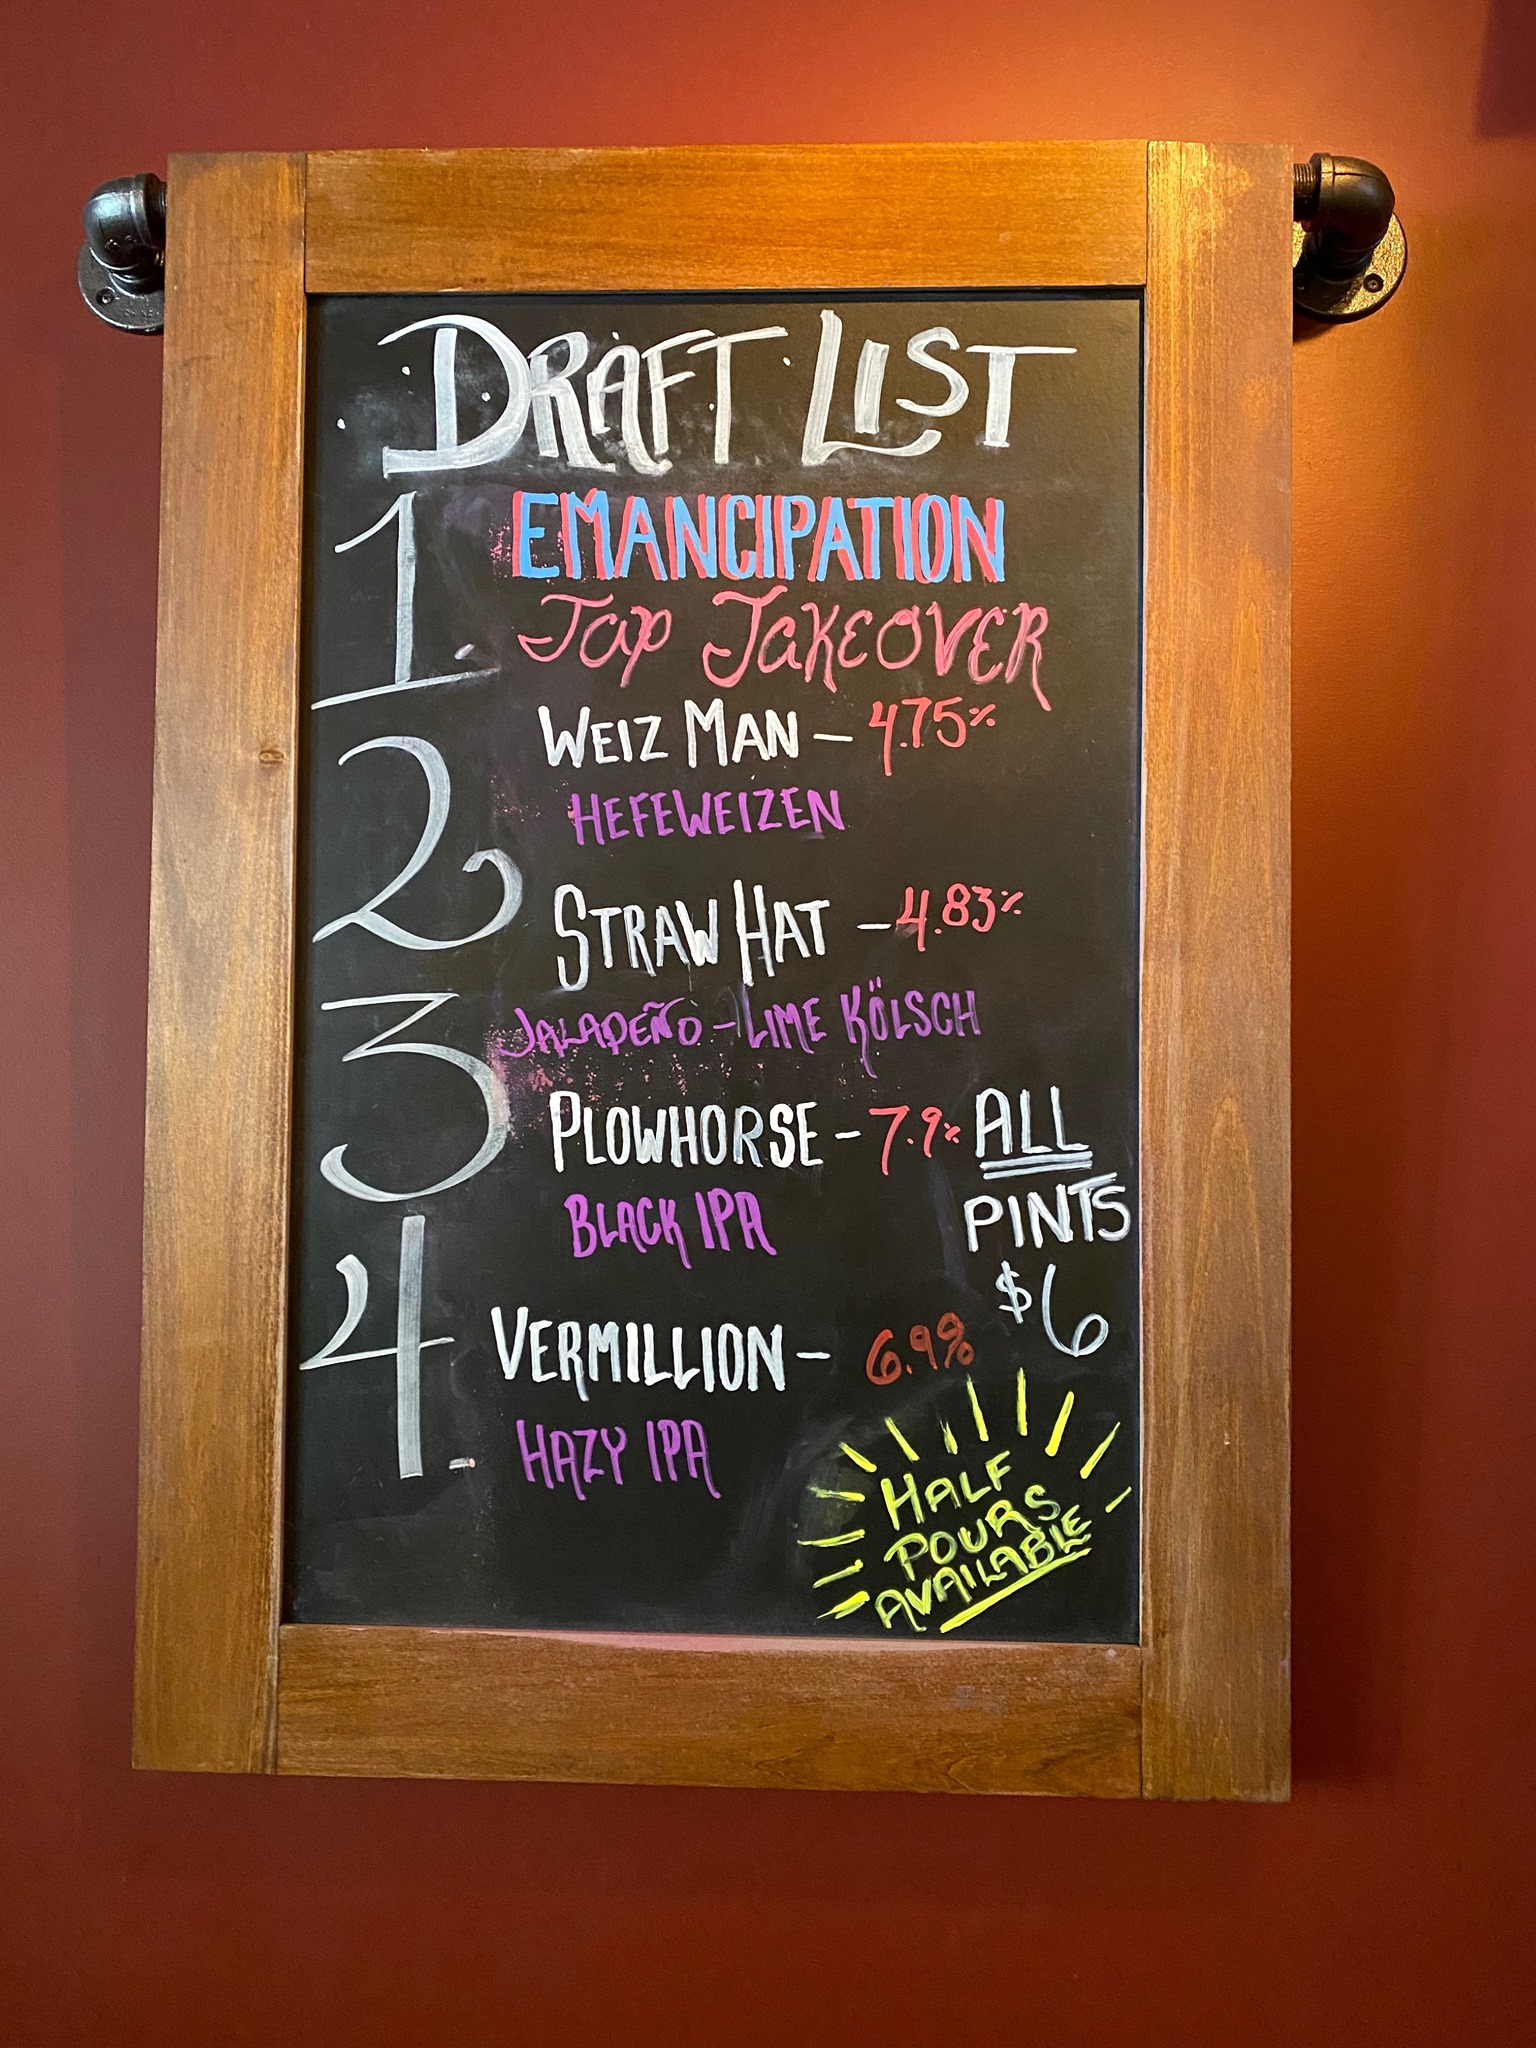 DRAFT LIST
1. EMANCIPATION
Tap TAKEOVER
WEIZ MAN - 4.75%
2 HEFEWEIZEN
STRAW HAT - 4.83%
3 JALAPEÑO - LIME KÖLSCH
PLOWHORSE - 7.9%
BLACK IPA
4. VERMILLION - 6.9%
HAZY IPA
ALL
PINTS
$6
HALF
POURS
AVAILABLE